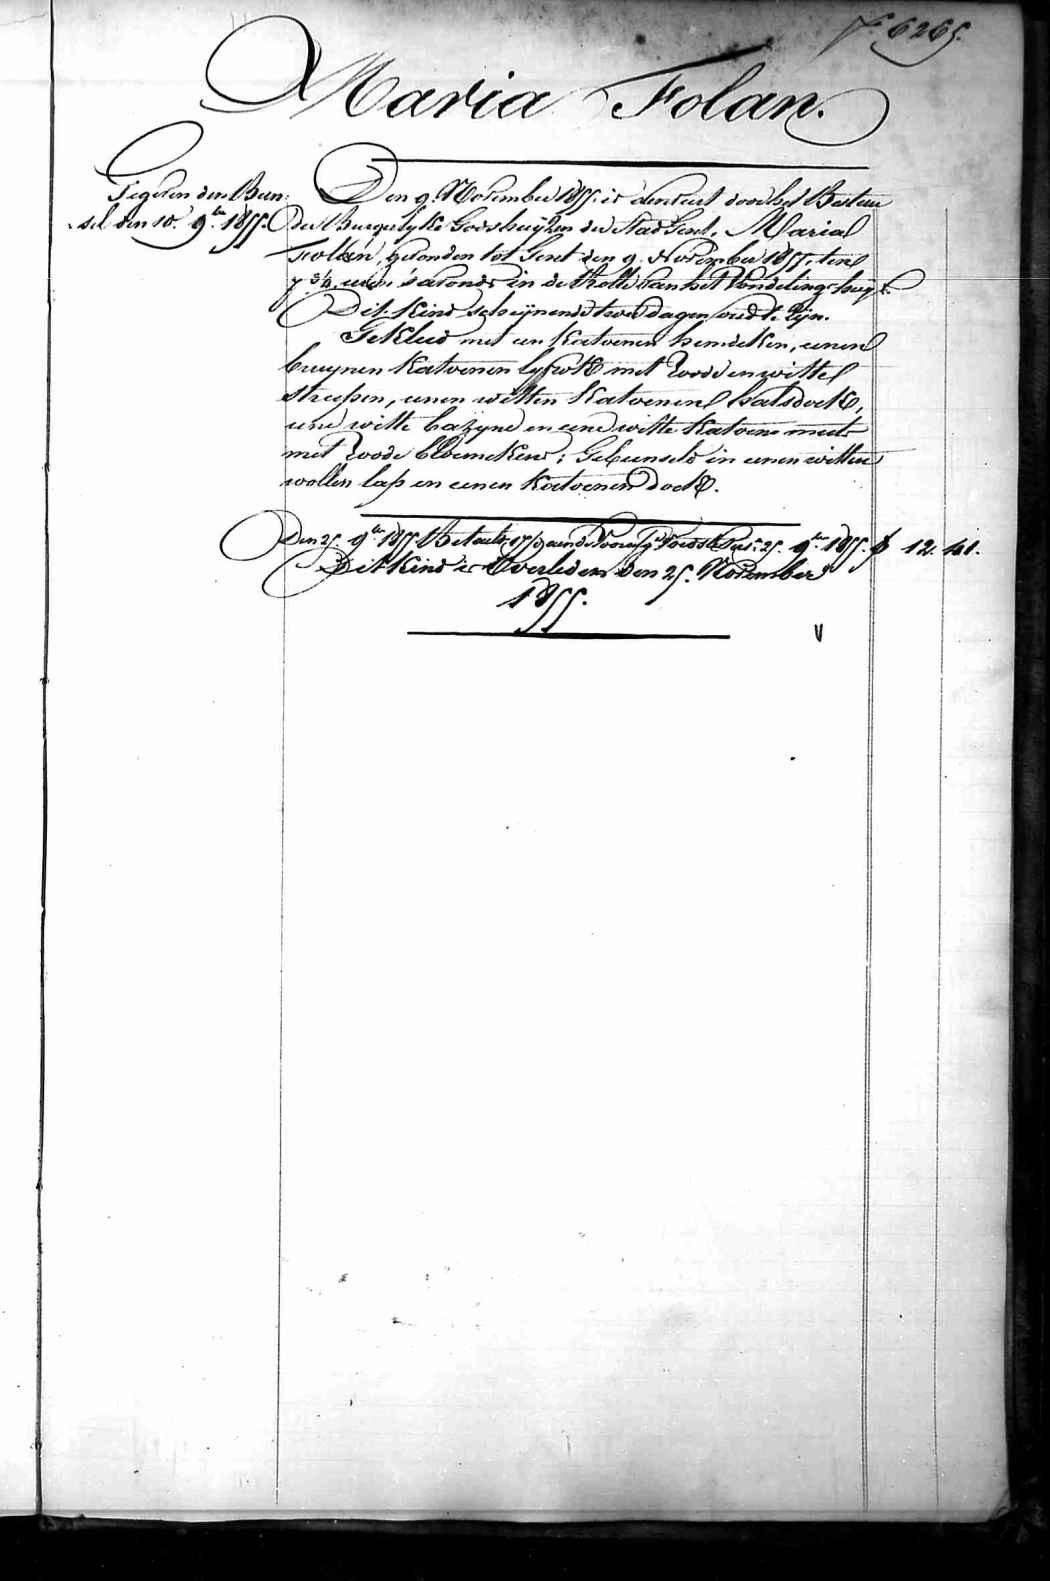 N.º 6265.
Maria Folan.
Gegeven den Bun-
sel den 10. 9.ber 1855.
Den 9. November 1855. is door het Bestuer
der Burgerlyke Godshuyzen der Stad Gent, Maria
Folan, gevonden tot Gent den 9. November 1855, ten
7 3/4 uren 's avonds in de Rolle van het Vondelinghuys.
Dit Kind schijnende twee dagen oud te zijn.
Gekleed met een Katoenen hemdeken, eenen
bruynen Katoenen lyfrok met Roode en witte
streepen, eenen witten Katoenen halsdoek,
eene witte bazyne en eene witte Katoene muts
met Roode bloemekens; Gebunseld in eenen witten
wollen lap en eenen Katoenen doek.
Den 25. 9.ber 1855. Betaelt 25. 9.ber 1855. 12. 41.
Dit Kind is Overleden den 25. November
1855.
V